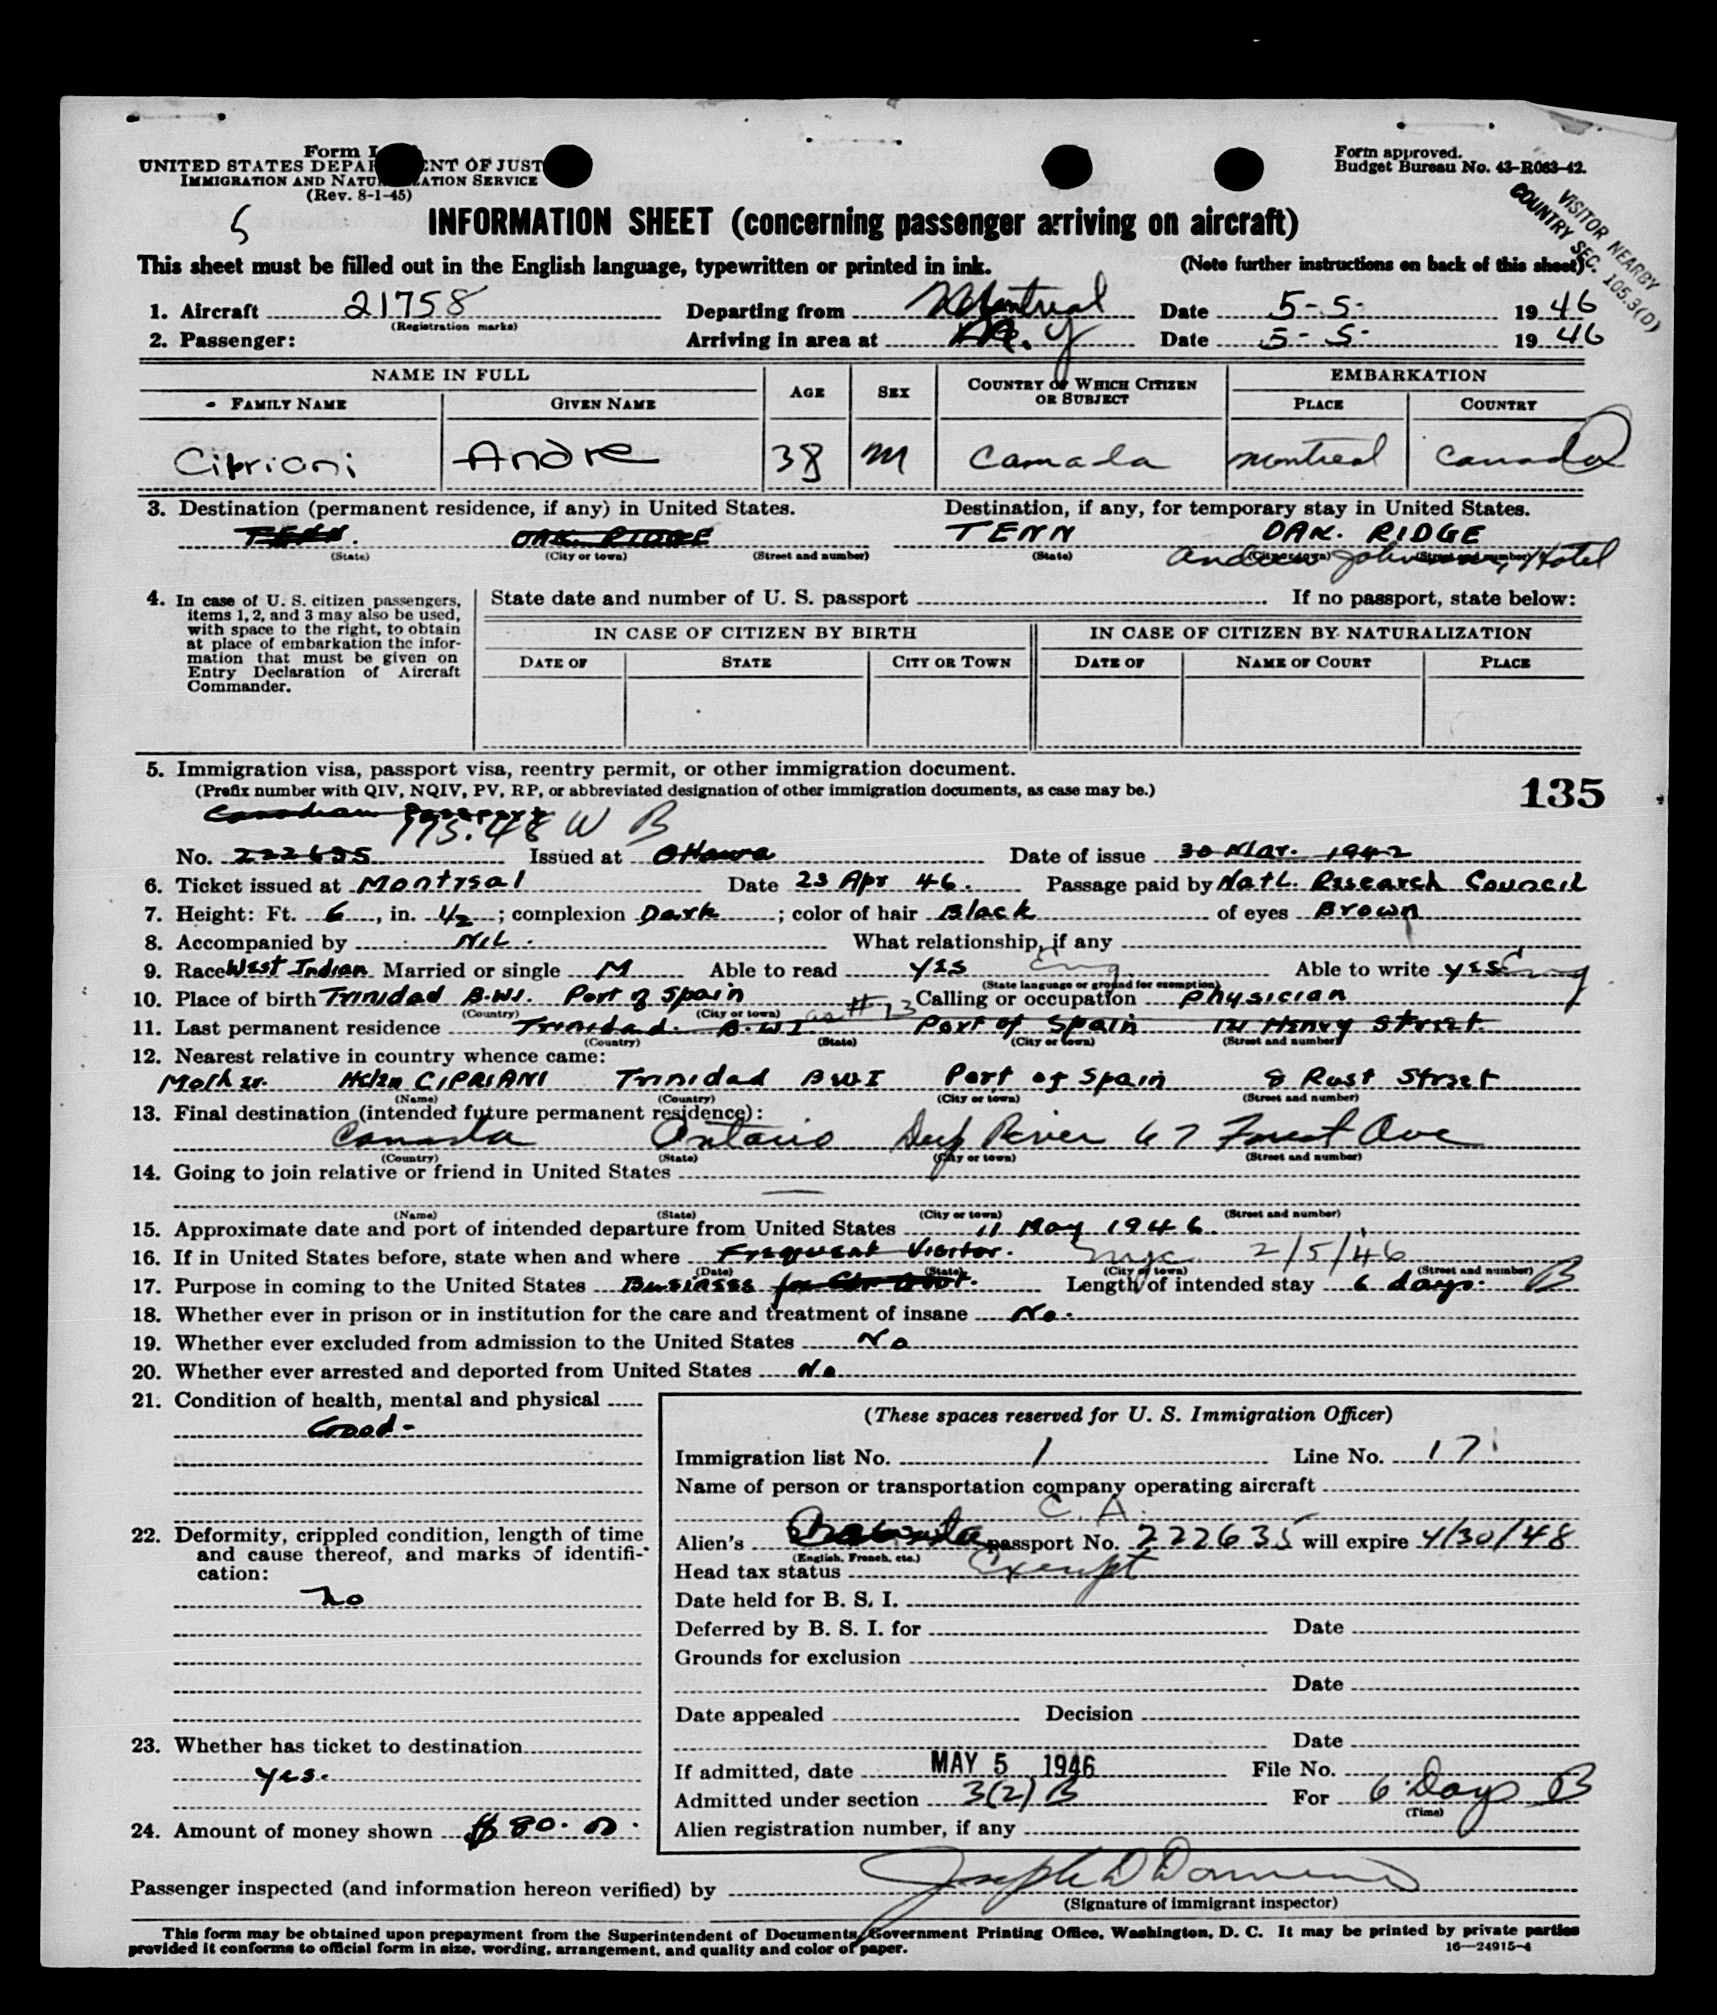 Form I
UNITED STATES DEPAR ENT OF JUST
IMMIGRATION AND NATU ZATION SERVICE
(Rev. 8-1-45)
Form approved.
Budget Bureau No. 43-R063-42.
VISITOR NEARBY
COUNTRY SEC. 105.3(D)
5
INFORMATION SHEET (concerning passenger arriving on aircraft)
This sheet must be filled out in the English language, typewritten or printed in ink. (Note further instructions on back of this sheet).
1. Aircraft 21758 Departing from Montreal Date 5-5- 1946
(Registration marks)
2. Passenger: Arriving in area at N.Y Date 5-5- 1946
NAME IN FULL AGE SEX COUNTRY OF WHICH CITIZEN OR SUBJECT EMBARKATION
FAMILY NAME GIVEN NAME PLACE COUNTRY
Cipriani Andre 38 M Canada Montreal Canada
3. Destination (permanent residence, if any) in United States. Destination, if any, for temporary stay in United States.
TENN. OAK RIDGE TENN OAK. RIDGE
(State) (City or town) (Street and number) (State) (City or town) (Street and number)
Andrew Johnson, Hotel
4. In case of U. S. citizen passengers, items 1, 2, and 3 may also be used, with space to the right, to obtain at place of embarkation the information that must be given on Entry Declaration of Aircraft Commander.
State date and number of U. S. passport If no passport, state below:
IN CASE OF CITIZEN BY BIRTH IN CASE OF CITIZEN BY NATURALIZATION
DATE OF STATE CITY OR TOWN DATE OF NAME OF COURT PLACE
5. Immigration visa, passport visa, reentry permit, or other immigration document.
(Prefix number with QIV, NQIV, PV, RP, or abbreviated designation of other immigration documents, as case may be.) 135
Canadian Passport
175.48 W B
No. 222635 Issued at Ottawa Date of issue 30 Mar. 1942
6. Ticket issued at Montreal Date 23 Apr 46. Passage paid by Natl. Research Council
7. Height: Ft. 6, in. 1/2; complexion Dark; color of hair Black of eyes Brown
8. Accompanied by Nil. What relationship, if any
9. Race West Indian Married or single M Able to read yes Eng. Able to write yes Eng
(State language or ground for exemption)
10. Place of birth Trinidad B.W.I. Port of Spain Calling or occupation Physician
(Country) (City or town) as #13
11. Last permanent residence Trinidad. B.W.I Port of Spain 121 Henry Street.
(Country) (State) (City or town) (Street and number)
12. Nearest relative in country whence came:
Mother. Helen CIPRIANI Trinidad BWI Port of Spain 8 Rust Street
(Name) (Country) (City or town) (Street and number)
13. Final destination (intended future permanent residence):
Canada Ontario Deep River 67 Forest Ave
(Country) (State) (City or town) (Street and number)
14. Going to join relative or friend in United States
—
(Name) (State) (City or town) (Street and number)
15. Approximate date and port of intended departure from United States 11 May 1946.
16. If in United States before, state when and where Frequent Visitor. 2/5/46
(Date) (State) (City or town) (Street and number)
17. Purpose in coming to the United States Business for Govt. Length of intended stay 6 days. B
18. Whether ever in prison or in institution for the care and treatment of insane No.
19. Whether ever excluded from admission to the United States No
20. Whether ever arrested and deported from United States No
21. Condition of health, mental and physical
Good-
22. Deformity, crippled condition, length of time and cause thereof, and marks of identification:
No
23. Whether has ticket to destination
Yes.
24. Amount of money shown $80.
(These spaces reserved for U. S. Immigration Officer)
Immigration list No. 1 Line No. 17
Name of person or transportation company operating aircraft
C. A.
Alien's passport No. 222635 will expire 4/30/48
(English, French, etc.)
Head tax status Exempt
Date held for B. S. I.
Deferred by B. S. I. for Date
Grounds for exclusion
Date
Date appealed Decision
Date
If admitted, date MAY 5 1946 File No.
Admitted under section 3(2) B For 6 Days B
(Time)
Alien registration number, if any
Passenger inspected (and information hereon verified) by Joseph D
(Signature of immigrant inspector)
This form may be obtained upon prepayment from the Superintendent of Documents, Government Printing Office, Washington, D. C. It may be printed by private parties
provided it conforms to official form in size, wording, arrangement, and quality and color of paper. 16—24915-4